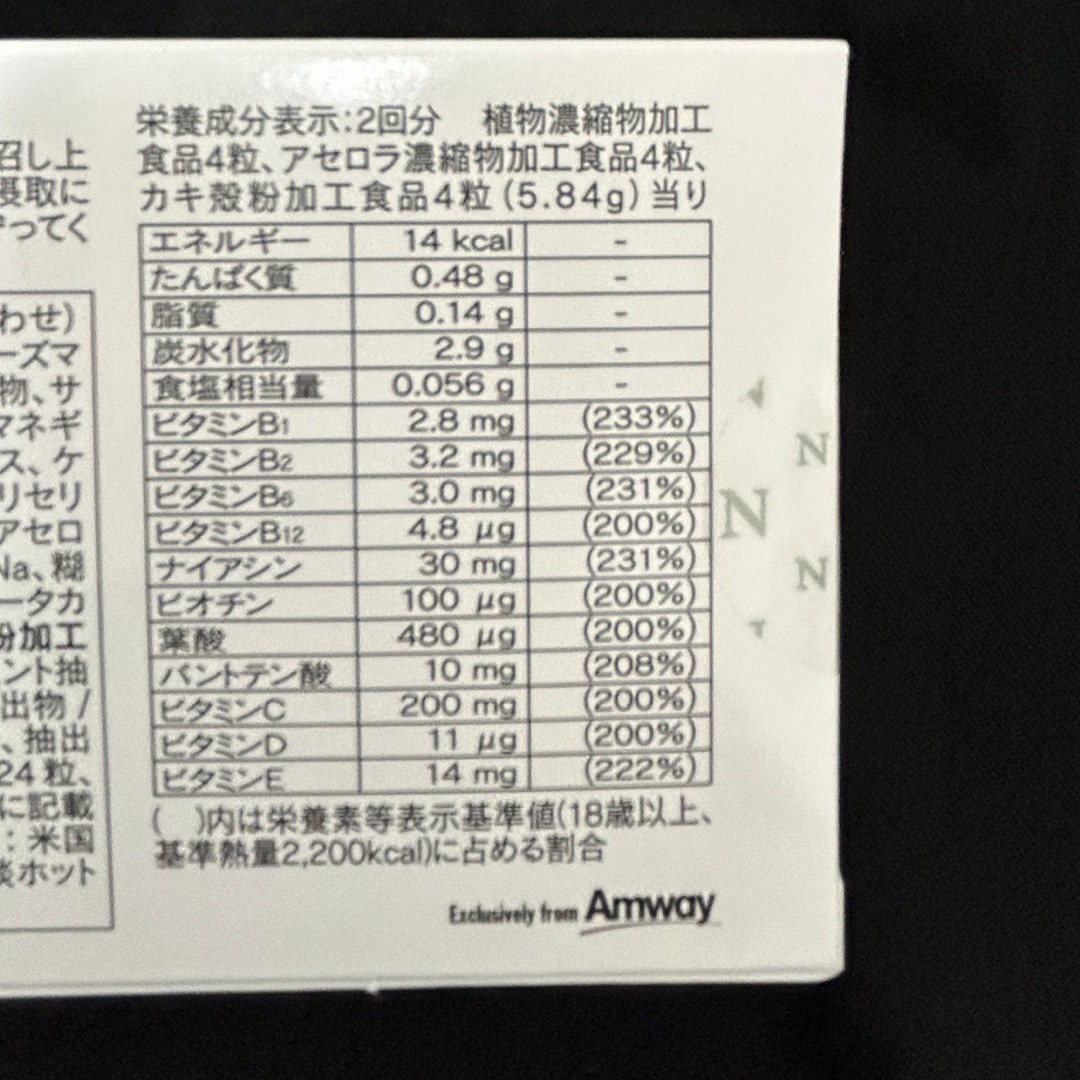 召し上
摂取に
守ってく
わせ)
ーズマ
物、サ
マネギ
ス、ケ
リセリ
アセロ
Na、糊
ータカ
粉加工
ント抽
出物 /
、抽出
24粒、
に記載
: 米国
談ホット
栄養成分表示:2回分 植物濃縮物加工
食品4粒、アセロラ濃縮物加工食品4粒、
カキ殻粉加工食品4粒(5.84g)当り
エネルギー 14 kcal -
たんぱく質 0.48 g -
脂質 0.14 g -
炭水化物 2.9 g -
食塩相当量 0.056 g -
ビタミンB1 2.8 mg (233%)
ビタミンB2 3.2 mg (229%)
ビタミンB6 3.0 mg (231%)
ビタミンB12 4.8 μg (200%)
ナイアシン 30 mg (231%)
ビオチン 100 μg (200%)
葉酸 480 μg (200%)
パントテン酸 10 mg (208%)
ビタミンC 200 mg (200%)
ビタミンD 11 μg (200%)
ビタミンE 14 mg (222%)
( )内は栄養素等表示基準値(18歳以上、
基準熱量2,200kcal)に占める割合
Exclusively from Amway
N
N
N